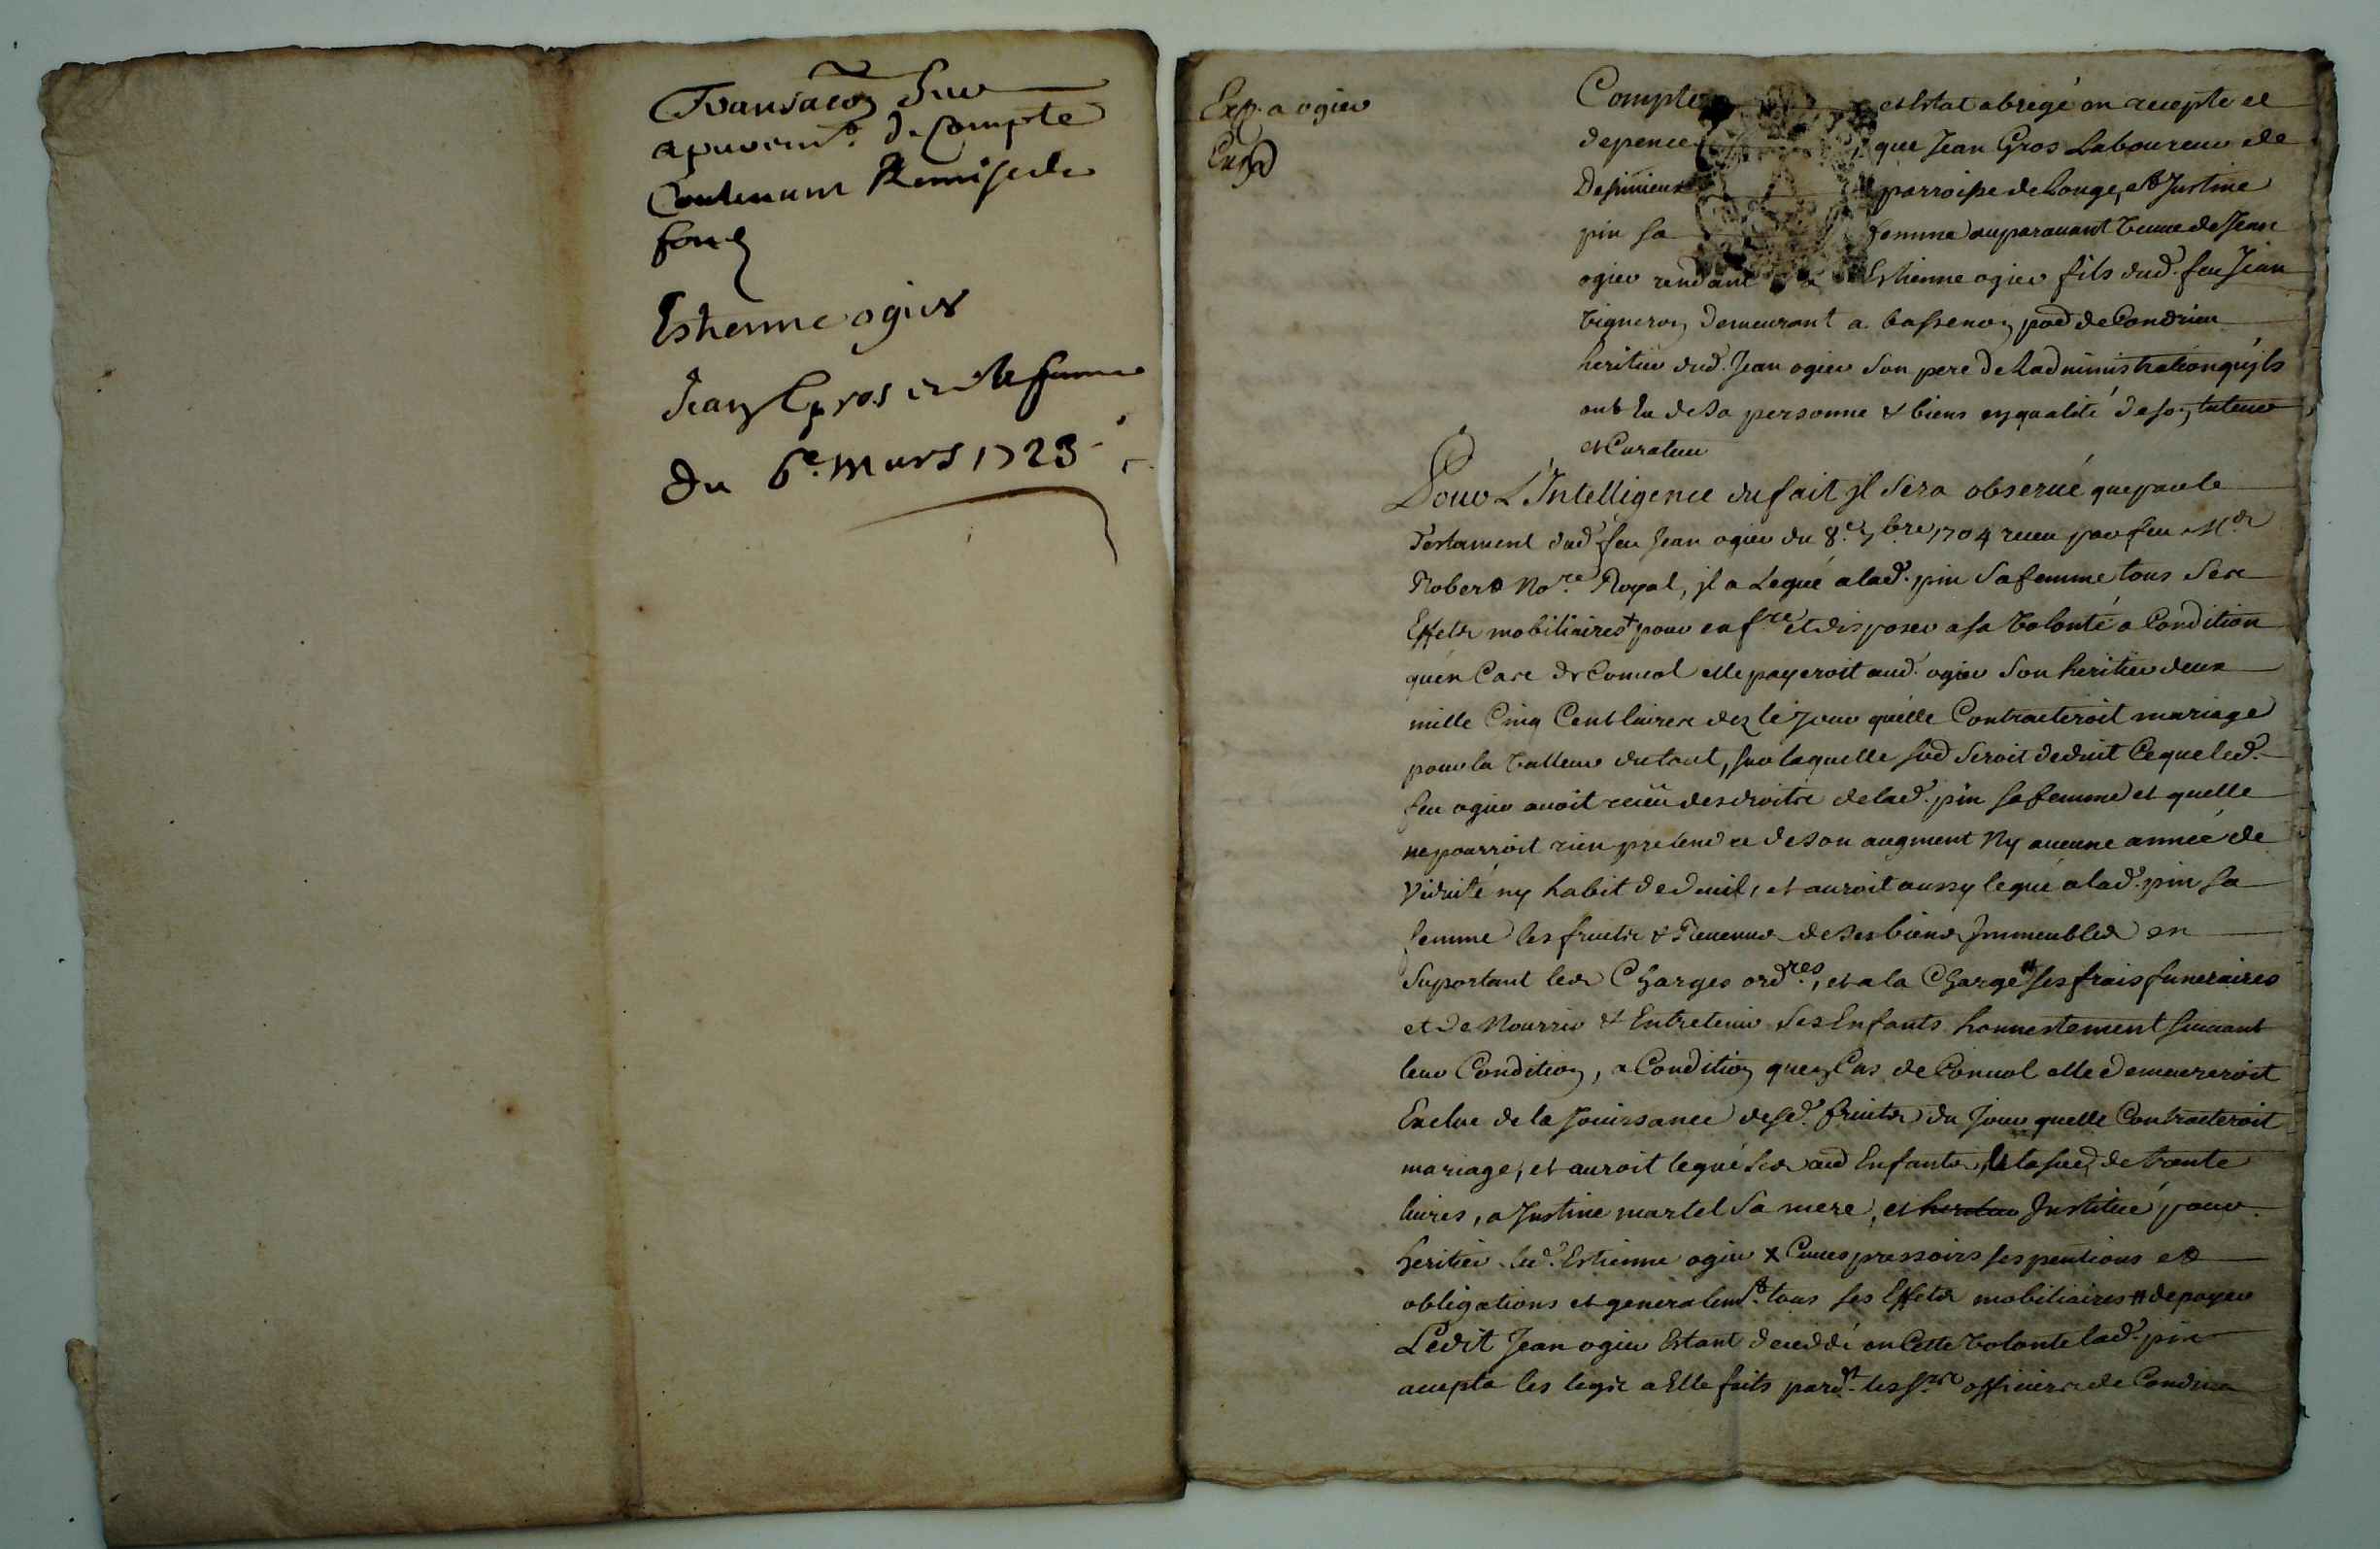 Transaction Sur
apurem.t de Compte
Contenant Remise de
fond
Estienne ogier
Jean Gros et sa femme
du 6.e Mars 1723
Exp. a ogier
Compte et Estat abregé en recepte et
depence que Jean Gros Laboureur de
parroisse de Longe, et Justine
pin sa femme auparavant veuve de Jean
ogier rendant a Estienne ogier fils dud. feu Jean
vigneron demeurant a bassenon parr. de Condrieu
heritier dud. Jean ogier son pere de Ladministration quils
ont Eu de sa personne & biens en qualité de son tuteur
et Curateur
Pour L'Intelligence du fait il sera observé que par le
Testament dud. feu Jean ogier du 8.e 7bre 1704 receu par feu M.e
Robert No.re Royal, jl a Legué a lad. pin sa femme tous ses
Effets mobiliaires + pour en f.re et disposer a sa volonté a Condition
quen Cas de Convol elle payeroit aud. ogier son heritier deux
mille Cinq Cent livres dez le jour quelle Contracteroit mariage
pour la valleur du tout, sur laquelle seroit deduit Ce que led.
feu ogier avoit receu des droits de lad. pin sa femme et quelle
ne pourroit rien pretendre de son augment Ny aucune année de
Viduité ny habit de deuil, et auroit aussy legué a lad. pin sa
femme les fruits & Revenus de ses biens Immeubles en
suportant les Charges ord.res, et a la Charge # ses frais funeraires
et de Nourrir & Entretenir ses Enfants honnestement suivant
leur Condition, a Condition quen Cas de Convol elle demeureroit
Exclue de la Jouissance desd. fruits du jour quelle Contracteroit
mariage, et auroit legué aud Enfants, de trente
livres, a Justine martel sa mere, et heritier Institué pour
heritier led. Estienne ogier X Cuves pressoirs ses pentions et
obligations et generalem.t tous ses Effets mobiliaires # de payer
Ledit Jean ogier Estant deceddé en Cette volonte lad. pin
accepta les legs a Elle faits pard.t les s.rs officiers de Condrieu